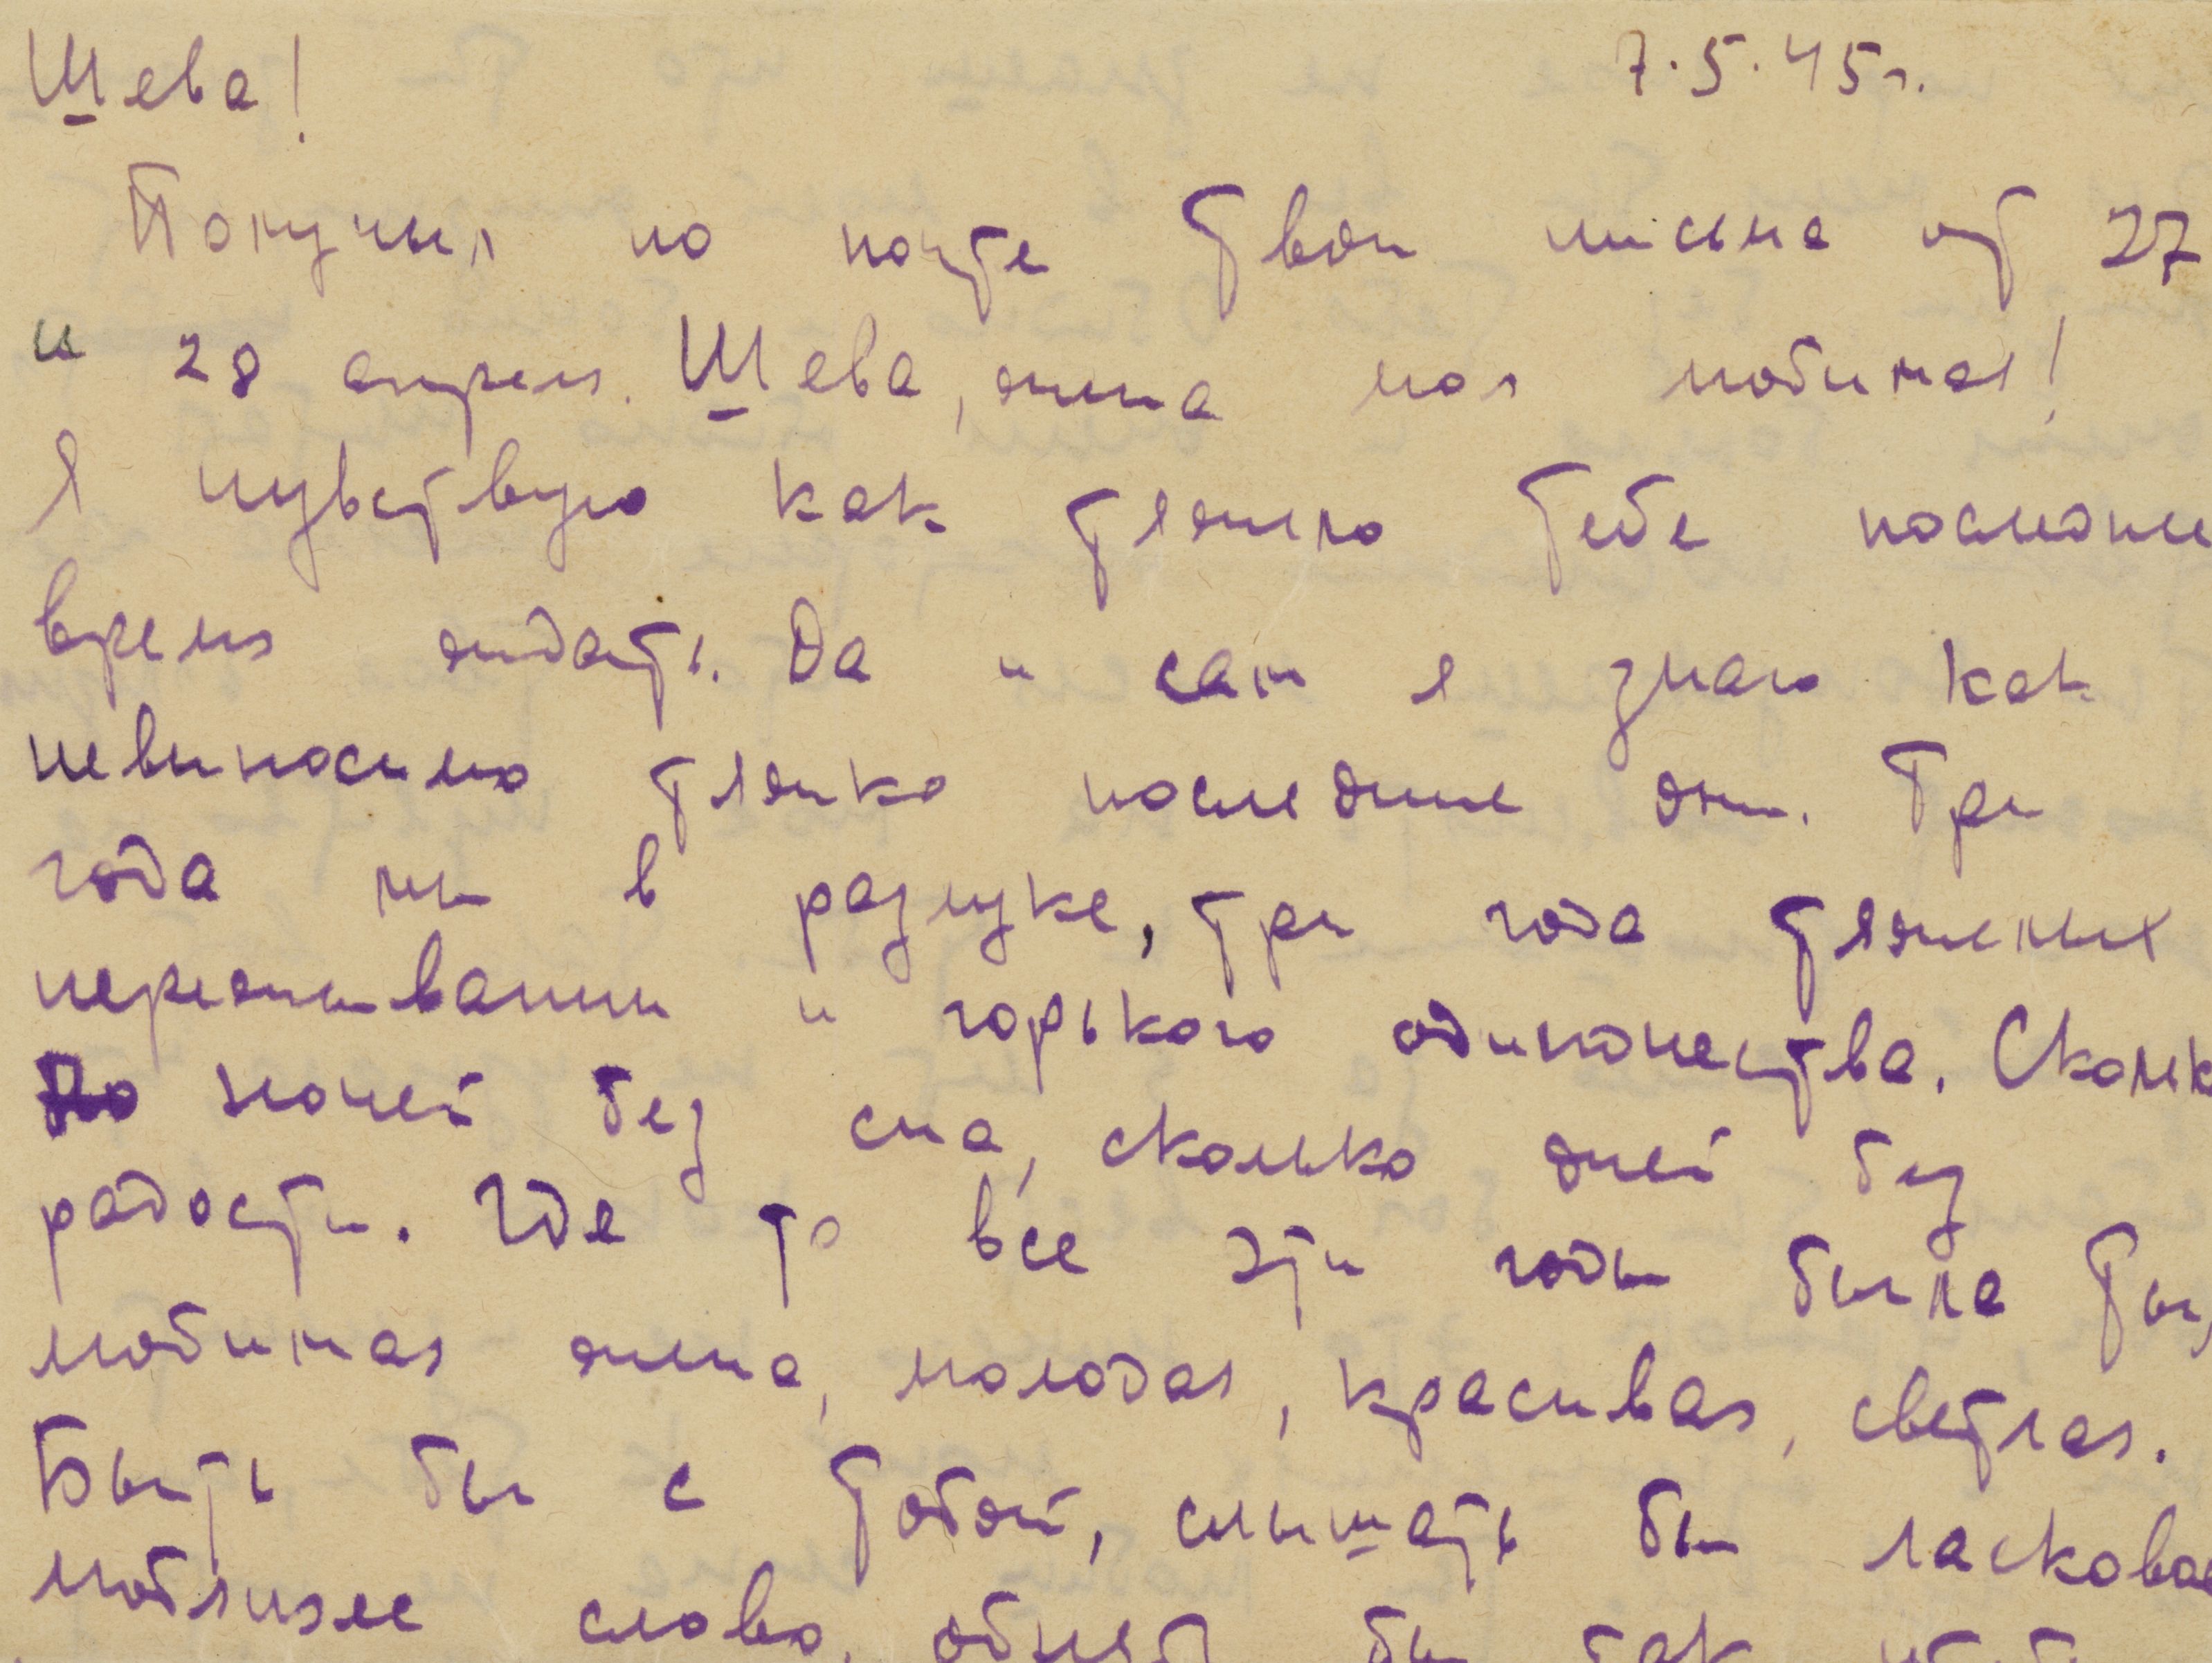 Шева! 7.5.45г.
Получил по почте твои письма от 27
и 28 апреля. Шева, жена моя любимая!
Я чувствую как тяжело тебе последнее
время ждать. Да и сам я знаю как
невыносимо тяжко последние дни. Три
года мы в разлуке, три года тяжелых
переживаний и горького одиночества. Сколь
ко ночей без сна, сколько дней без
радости. Где то все эти годы была ты,
любимая жена, молодая, красивая, светлая.
Быть бы с тобой, слышать бы ласковое
любящее слово, обнять бы так